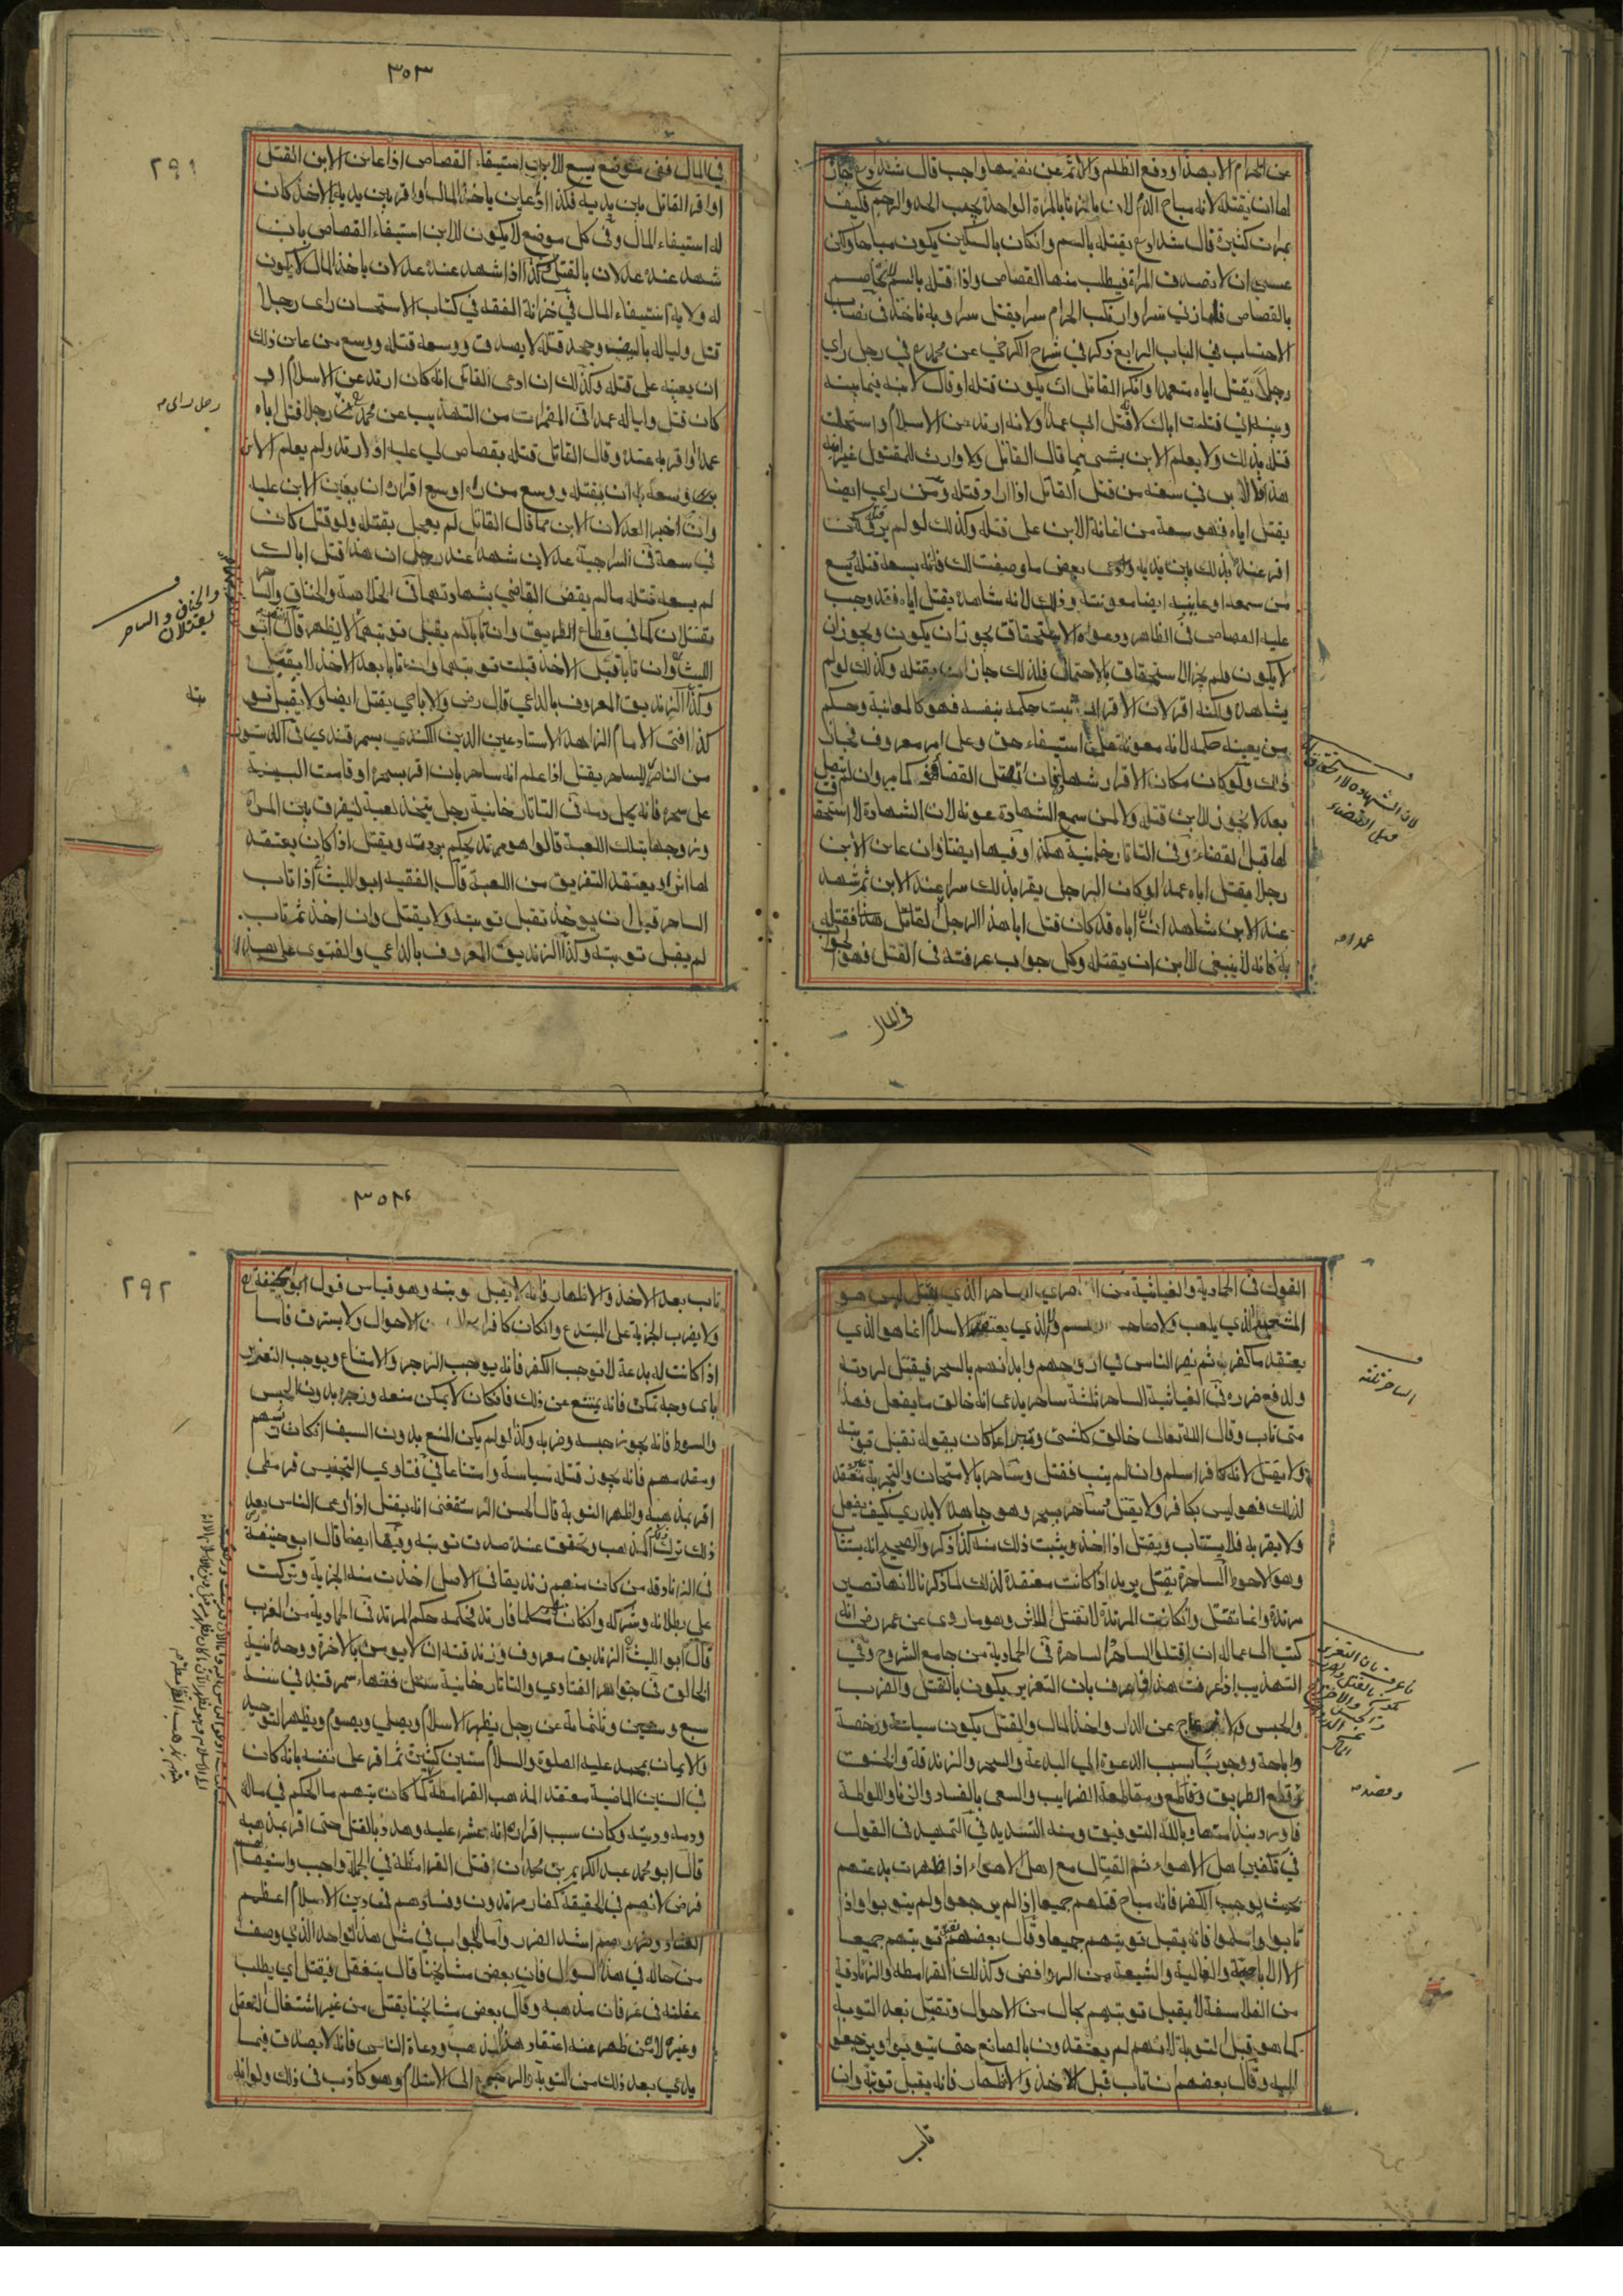 عن الحرام الا بهذا ودفع الظلم والاثم عن نفسها واجب قال شداد وع جاز
لها ان يقتله لانه مباح الدم لان بالزنا بالمرة الواحدة يجب الحد والرجم فكيف
بمرات كثيرة قال شداد وع يقتله بالسم وان كان بالسكين يكون مباحا ولكن
عسى ان لا تصدق المرأة فيطلب منها القصاص واذا قتله بالسم لا تخاصم
بالقصاص فلما زنى سرا وارتكب الحرام سرا يقتل سرا وبه ناخذ في نصاب
الاحتساب في الباب الرابع ذكر في شرح الكرخي عن محمد ع في رجل راى
رجلا يقتل اباه متعمدا وانكر القاتل ان يكون قتله او قال لابنه فيما بينه
وبينه اني قتلت اباك لانه قتل ابي عمدا ولانه ارتد عن الاسلام واستحلت
قتله بذلك ولا يعلم الابن بشئ مما قال القاتل ولا وارث للمقتول غير ابنه
هذا فالابن في سعة من قتل القاتل اذا اراد قتله ومن راى ايضا
يقتل اباه فهو سعة من اعانة الابن على قتله وكذلك لو لم ير قتله لكن
اقر عنده بذلك بين يديه وادعى بعض ما وصفت لك فانه يسعه قتله ويسع
من سمعه او عاينه ايضا معونته وذلك لانه شاهده يقتل اباه فقد وجب
عليه القصاص في الظاهر ودعواه الاستحقاق يجوز ان يكون ويجوز ان
لا يكون فلم يجز الاستحقاق بالاحتمال فلذلك جاز ان يقتله وكذلك لو لم
يشاهده ولكنه اقر لان الاقرار يثبت حكمه بنفسه فهو كالمعاينة وحكم
من يعينه حكمه لانه معونة على استيفاء حق وعلى امر معروف فجاز
ذلك ولو كان مكان الاقرار شهادة فان اتصل القضاء فهو كما مر وان لم يتصل
بعد لا يجوز للابن قتله ولا لمن سمع الشهادة عونه لان الشهادة لا استحقاق
لها قبل القضاء وفي التاتارخانية هكذا وفيها ايضا وان عاين الابن
رجلا يقتل اباه عمدا او كان الرجل يقر بذلك سرا عند الابن ثم شهد
عند الابن شاهدان ان اباه قد كان قتل ابا هذا الرجل القاتل هذا فقتله
به فانه لا ينبغي للابن ان يقتله وكل جواب عرفته في القتل فهو الجواب
في المال
لان الشهادة لا استحقاق لها
قبل القضاء
عمدا صه
٣٥٣
٢٩١
في المال ففي موضع يسع للابن استيفاء القصاص اذا عاين الابن القتل
او اقر القاتل بين يديه فكذا اذا عاين ياخذ المال او اقر بين يديه بالاخذ كان
له استيفاء المال وفي كل موضع لا يكون للابن استيفاء القصاص بان
شهد عنده عدلان بالقتل فكذا اذا شهد عنده عدلان باخذ المال لا يكون
له ولاية استيفاء المال في خزانة الفقه في كتاب الاستحسان راى رجلا
قتل وليا له بالسيف وجحد قتله لا يصدق ووسعه قتله ووسع من عاين ذلك
ان يعينه على قتله وكذلك ان ادعى القاتل انه كان ارتد عن الاسلام او
كان قتل وليا له عمدا في المضمرات من التهذيب عن محمد رجلا قتل اباه
عمدا او اقر به عنده وقال القاتل قتله بقصاص لي عليه او لارتد ولم يعلم الابن
وسعه ان يقتله ووسع من راه او سمع اقراره ان يعين الابن عليه
وان اخبر العدلان الابن بما قال القاتل لم يعجل بقتله ولو قتل كان
في سعة في السراجية عدلان شهدا عند رجل ان هذا قتل اباك
لم يسعه قتله ما لم يقض القاضي بشهادتهما في الخلاصة والخناق والساحر
يقتلان كما في قطاع الطريق وان تابا لم يقبل توبتهما لا يظهر قال ابو
الليث وان تابا قبل الاخذ قبلت توبتهما وان تابا بعد الاخذ لا يقبل
وكذا الزنديق المعروف بالداعي قال رض والاباحي يقتل ايضا ولا يقبل تو
كذا افتى الامام الزاهد الاستاد عين الدين الكندي بسمرقندي في الدستور
من الناصر للساحر يقتل اذا علم انه ساحر بان اقر بسحره او قامت البينة
على سحره فانه يحل دمه في التاتارخانية رجل يتخذ لعبة ليفرق بين المرأة
وزوجها بتلك اللعبة قالوا هو مرتد يحكم بردته ويقتل اذا كان يعتقد
لها اثرا ويعتقد التفريق من اللعبة قال الفقيه ابو الليث اذا تاب
الساحر قبل ان يوخذ تقبل توبته ولا يقتل وان اخذ ثم تاب
لم يقبل توبته وكذا الزنديق المعروف بالداعي والفتوى على هذا
رجل راى صه
والخناق والساحر
يقتلان
بته
القول في الحمادية والغياثية من الساحر الذي يقتل ليس هو
الذي يلعب ولا صاحب الذي يعتقد الاسلام انما هو الذي
يعتقد ما كفر به ثم يضر الناس في ارواحهم وابدانهم بالسحر فيقتل لردته
ولدفع ضرره في الغياثية الساحر ثلثة ساحر يدعى انه خالق ما يفعل فهذا
متى تاب وقال الله تعالى خالق كل شئ وتبرا عما كان يقوله تقبل توبته
ولا يقتل لانه كافر اسلم وان لم يتب فقتل وساحر بالامتحان والتجربة معتقد
لذلك فهو ليس بكافر ولا يقتل وساحر يسحر وهو جاهد لا يدري كيف يفعل
ولا يقر به فلا يستتاب ويقتل اذا اخذ ويثبت ذلك منه كذا ذكر والصحيح انه يستتاب
وهو الاحوط الساحرة تقتل يريد اذا كانت معتقدة لذلك لما ذكرنا لانها تصير
مرتدة وانما تقتل وان كانت المرتدة لا تقتل للاثر وهو ما روى عن عمر رض انه
كتب الى عماله ان اقتلوا الساحر والساحرة في الحمادية من جامع الشروح وفي
التهذيب اذا عرفت هذا فاعرف بان التعزير يكون بالقتل والضرب
والحبس والازعاج عن الدار واخذ المال والقتل يكون سياسة ورخصة
واباحة ووجوبا بسبب الدعوة الى البدعة والسحر والزندقة والخنوت
وقطع الطريق ومقاطعة الضرايب والسعي بالفساد والزنا واللواطة
فاورد نبذا منها وبالله التوفيق ومنه التسديد في التمهيد في القول
في تكفير اهل الاهواء ثم القتال مع اهل الاهواء اذا ظهرت بدعتهم
بحيث يوجب الكفر فانه مباح قتلهم جميعا اذا لم يرجعوا ولم يتوبوا واذا
تابوا واسلموا فانه يقبل توبتهم جميعا وقال بعضهم يقبل توبتهم جميعا
الا الاباحية والغالية والشيعة من الروافض وكذلك القرامطة والزنادقة
من الفلاسفة لا يقبل توبتهم بحال من الاحوال وتقبل بعد التوبة
كما هو قبل التوبة لانهم لم يعتقدون بالصانع حتى يتوبوا ويرجعوا
اليه وقال بعضهم ان تاب قبل الاخذ والاظهار فانه يقبل توبته وان
تاب
الساحر ثلثة
٣٥٤
٢٩٢
تاب بعد الاخذ والاظهار فانه لا يقبل توبته وهو قياس قول ابو حنيفة ع
ولا يضرب الجزية على المبتدع وان كان كافرا الاحوال ولا يسترق فاما
اذا كانت له بدعة لا توجب الكفر فانه يوجب الزجر والامتناع ويوجب التعزير
باى وجه تمكن فانه يمتنع عن ذلك فان كان لا يمكن منعه وزجره بدون الحبس
والسوط فانه يجوز حبسه وضربه وكذا لو لم يكن المنع بدون السيف ان كان رئيسهم
ومقدمهم فانه يجوز قتله سياسة وامتناعا في فتاوي التجنيس قرمطي
اقر بمذهبه واظهر التوبة قال الحسن الرستغفني انه يقتل اذا دعى الناس بعد
ذلك ترك المذهب وتحقق عنده صدق توبته وفيها ايضا قال ابو حنيفة
في الزنادقة من كان منهم زنديقا في الاصل اخذت منه الجزية وتركت
على بطلانه وشركه وان كان مسلما فارتد فحكمه حكم المرتد في الحمادية من الغرب
قال ابو الليث الزنديق معروف وزندقته ان لا يومن بالاخرة ووحدانية
الخالق في جواهر الفتاوي والتاتارخانية سئل فقهاء سمرقند في سنة
سبع وستين وثلثمائة عن رجل يظهر الاسلام ويصلي ويصوم ويظهر التوحيد
والايمان بمحمد عليه الصلوة والسلام سنين كثيرة ثم اقر على نفسه بانه كان
في السنين الماضية معتقد المذهب القرامطة كما كان يتهم ما الحكم في ماله
ودمه وديته وكان سبب اقراره انه عثر عليه وهدد بالقتل حتى اقر بمذهبه
قال ابو محمد عبد الكريم بن محمد ان قتل القرامطة في الجملة واجب واستيصالهم
فرض لانهم في الحقيقة كفار مرتدون وفسادهم في دين الاسلام اعظم
الفساد وضررهم اشد الضرر واما الجواب في مثل هذا الواحد الذي وصف
من حاله في هذا السوال فان بعض مشايخنا قال يتغفل فيقتل اي يطلب
غفلته في عرفان مذهبه وقال بعض مشايخنا يقتل من غير اشتغال لتغفل
وغيره لان من ظهر منه اعتقاد هذا المذهب ودعاء الناس فانه لا يصدق فيما
يدعي بعد ذلك من التوبة والرجوع الى الاسلام وهو كاذب في ذلك ولو انه